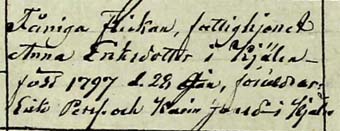 Fåniga Flickan, fattighjonet
Anna Eriksdotter i Kjälen
född 1797 d. 28 föräldrar:
Erik Perss. och Karin Jonsd. i Kjäln